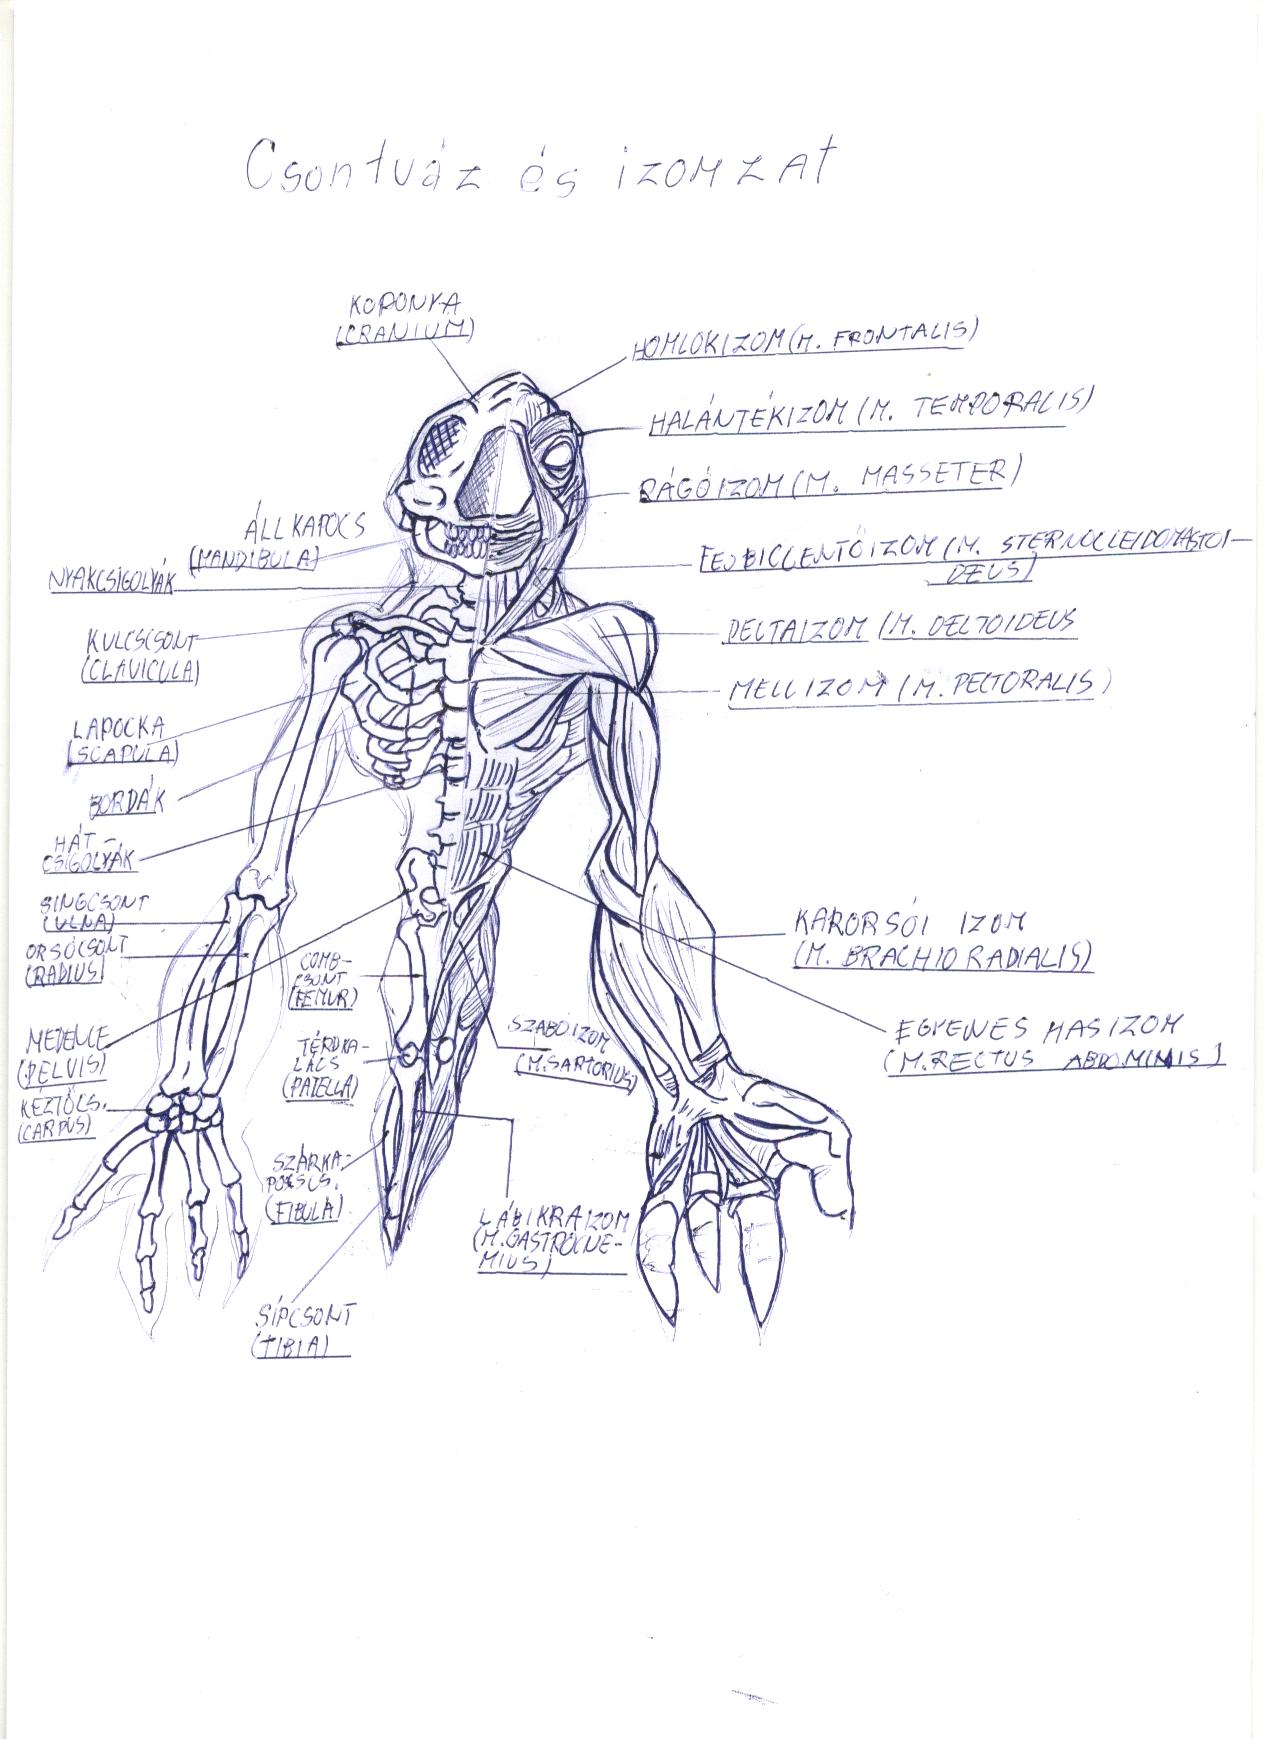 Csontváz és izomzat
KOPONYA
(CRANIUM)
HOMLOKIZOM (M. FRONTALIS)
HALÁNTÉKIZOM (M. TEMPORALIS)
RÁGÓIZOM (M. MASSETER)
ÁLLKAPOCS
(MANDIBULA)
FEJBICCENTŐIZOM (M. STERNOCLEIDOMASTOI-
DEUS)
NYAKCSIGOLYÁK
DELTAIZOM (M. DELTOIDEUS
KULCSCSONT
(CLAVICULA)
MELLIZOM (M. PECTORALIS)
LAPOCKA
(SCAPULA)
BORDÁK
HÁT-
CSIGOLYÁK
SINGCSONT
(ULNA)
ORSÓCSONT
(RADIUS)
KARORSÓI IZOM
(M. BRACHIORADIALIS)
COMB-
CSONT
(FEMUR)
EGYENES HASIZOM
(M. RECTUS ABDOMINIS)
MEDENCE
(PELVIS)
SZABÓIZOM
(M. SARTORIUS)
TÉRDKA-
LÁCS
(PATELLA)
KÉZTŐCS.
(CARPUS)
SZÁRKA-
POCSCS.
(FIBULA)
LÁBIKRAIZOM
(M. GASTROCNE-
MIUS)
SÍPCSONT
(TIBIA)